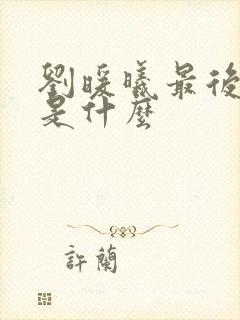 劉暖曦最後
是什麼
許蘭